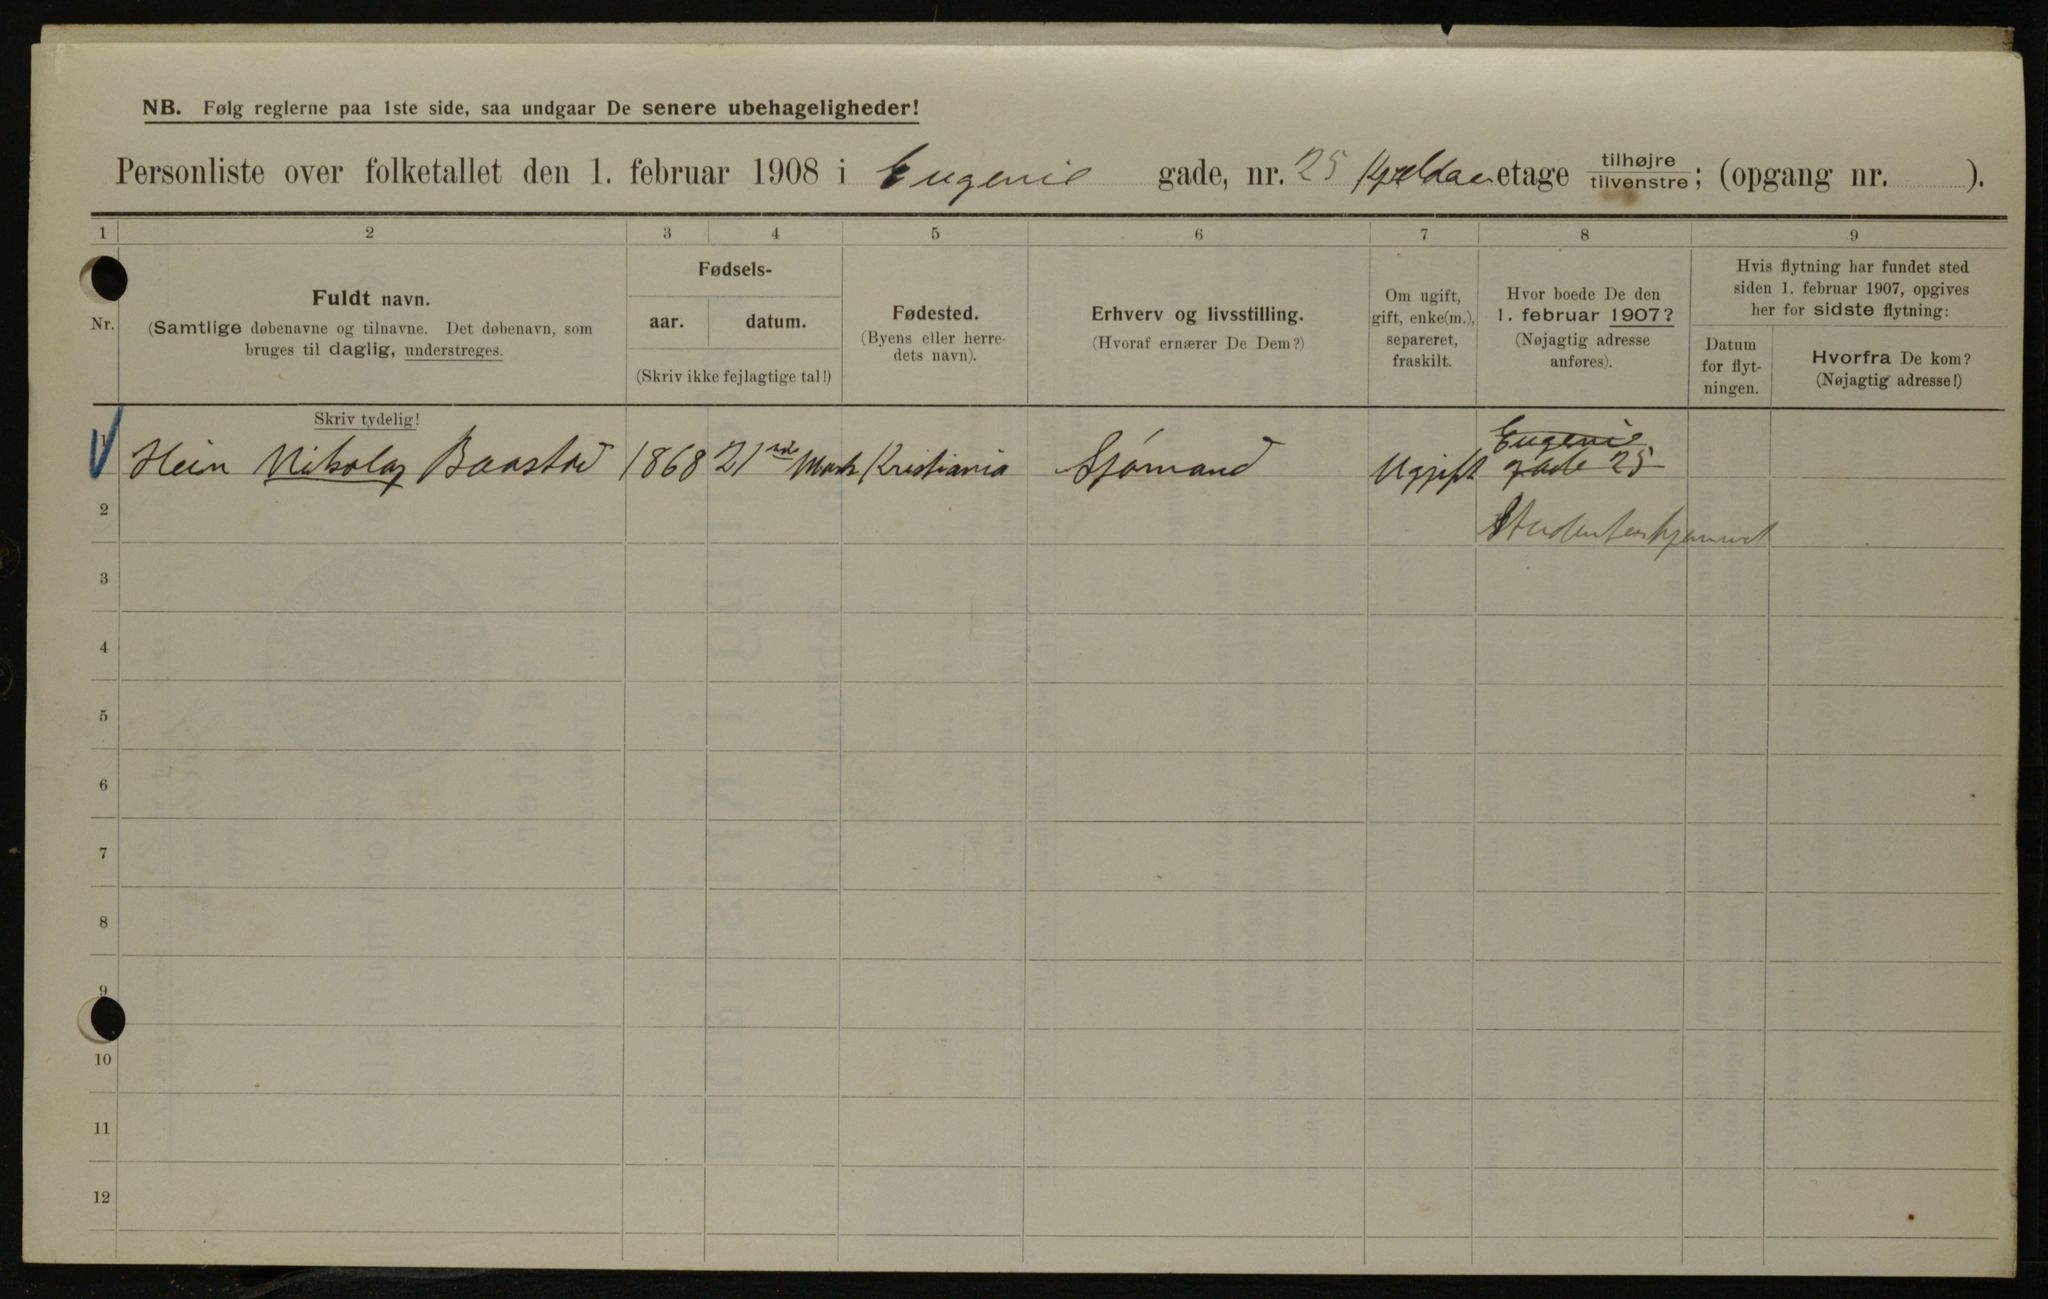 NB. Følg reglerne paa 1ste side, saa undgaar De senere ubehageligheder!
Personliste over folketallet den 1. februar 1908 i Eugenie gade, nr. 25 Kjelder etage tilhøjre/tilvenstre; (opgang nr. ).
1 2 3 4 5 6 7 8 9
Nr.
Fuldt navn.
(Samtlige døbenavne og tilnavne. Det døbenavn, som
bruges til daglig, understreges.
Skriv tydelig!
Fødsels-
aar. datum.
(Skriv ikke fejlagtige tal!)
Fødested.
(Byens eller herre-
dets navn).
Erhverv og livsstilling.
(Hvoraf ernærer De Dem?)
Om ugift,
gift, enke(m.),
separeret,
fraskilt.
Hvor boede De den
1. februar 1907?
(Nøjagtig adresse
anføres).
Hvis flytning har fundet sted
siden 1. februar 1907, opgives
her for sidste flytning:
Datum
for flyt-
ningen.
Hvorfra De kom?
(Nøjagtig adresse!)
1 Hein Nikolay Baastad 1868 21 Marts Kristiania Sjómand Ugift Eugenie
gade 25
2 Studenterhjemmet
3
4
5
6
7
8
9
10
11
12